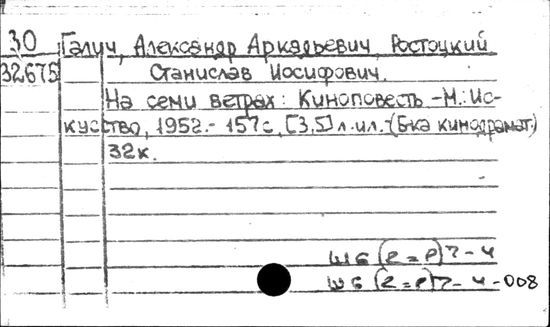 30 Галич, Александр Аркадьевич, Ростоцкий
32675 Станислав Иосифович.
На семи ветрах: Киноповесть -М.: Ис-
кусство, 1952.- 157с, [3,5] л.ил.-(Б-ка кинодрамат.)
32к.
Ш6 (2=Р)7-4
Ш6 (2=Р)7-4-008